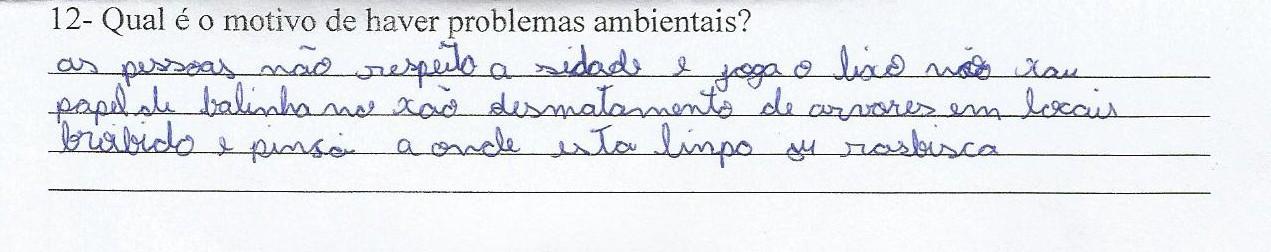 12- Qual é o motivo de haver problemas ambientais?
as pessoas não respeito a sidade e joga o lixo não xau
papel de balinha no xão desmatamento de arvores em locais
broibido e pinsa a onde esta linpo ou rasbisca